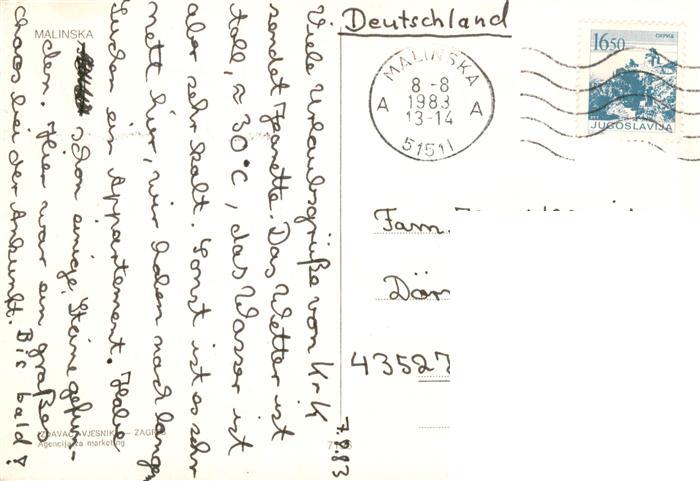 MALINSKA
Viele Urlaubsgrüße von Krk
sendet Jeanette. Das Wetter ist
toll, ≈ 30°C, das Wasser ist
aber sehr kalt. Sonst ist es sehr
nett hier, wir haben nach langem
Suchen ein Appartement. Habe
schon einige Steine gefun-
den. Hier war ein großes
Chaos bei der Ankunft. Bis bald!
7.8.83
IZDAVAČ VJESNIK — ZAGREB
Agencija za marketing
Deutschland
MALINSKA
8 -8
1983
13-14
A A
51511
16.50
JUGOSLAVIJA
Fam.
Där
43527